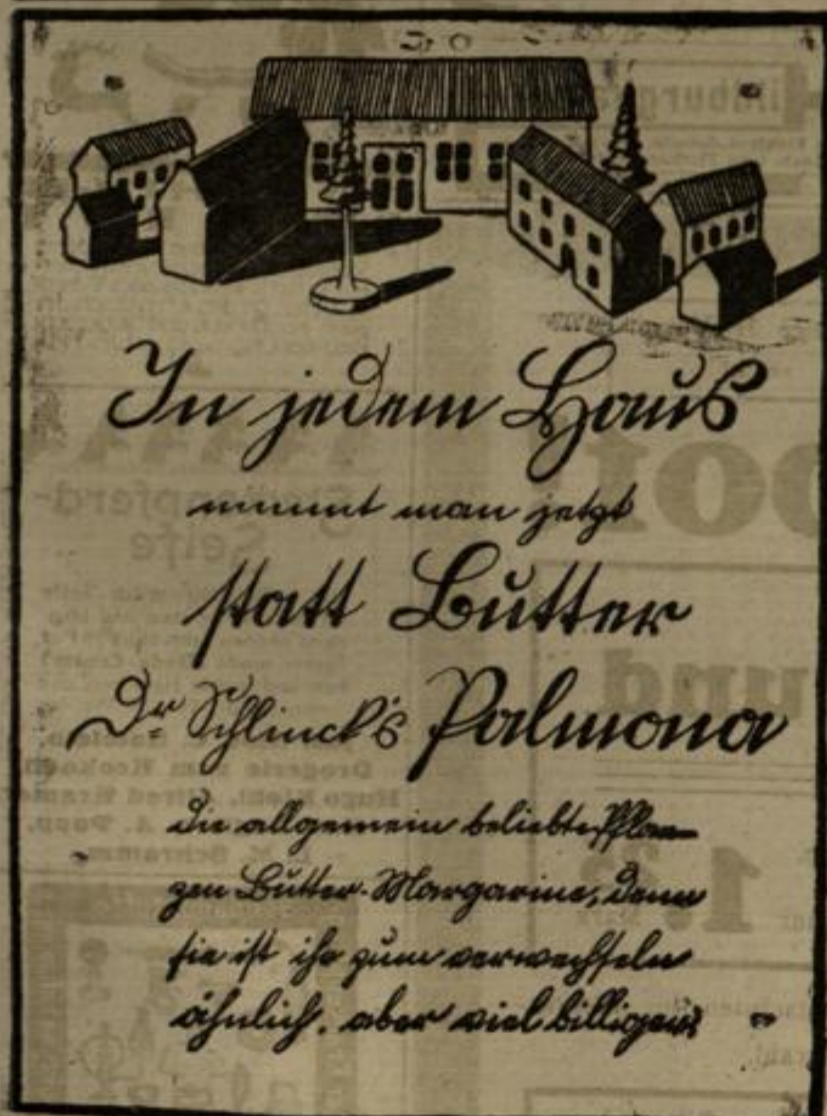 In jedem Haus
nimmt man jetzt
statt Butter
Dr Schlinck's Palmona
die allgemein beliebte Pflan-
zen Butter-Margarine, denn
sie ist ihr zum verwechseln
ähnlich, aber viel billiger.